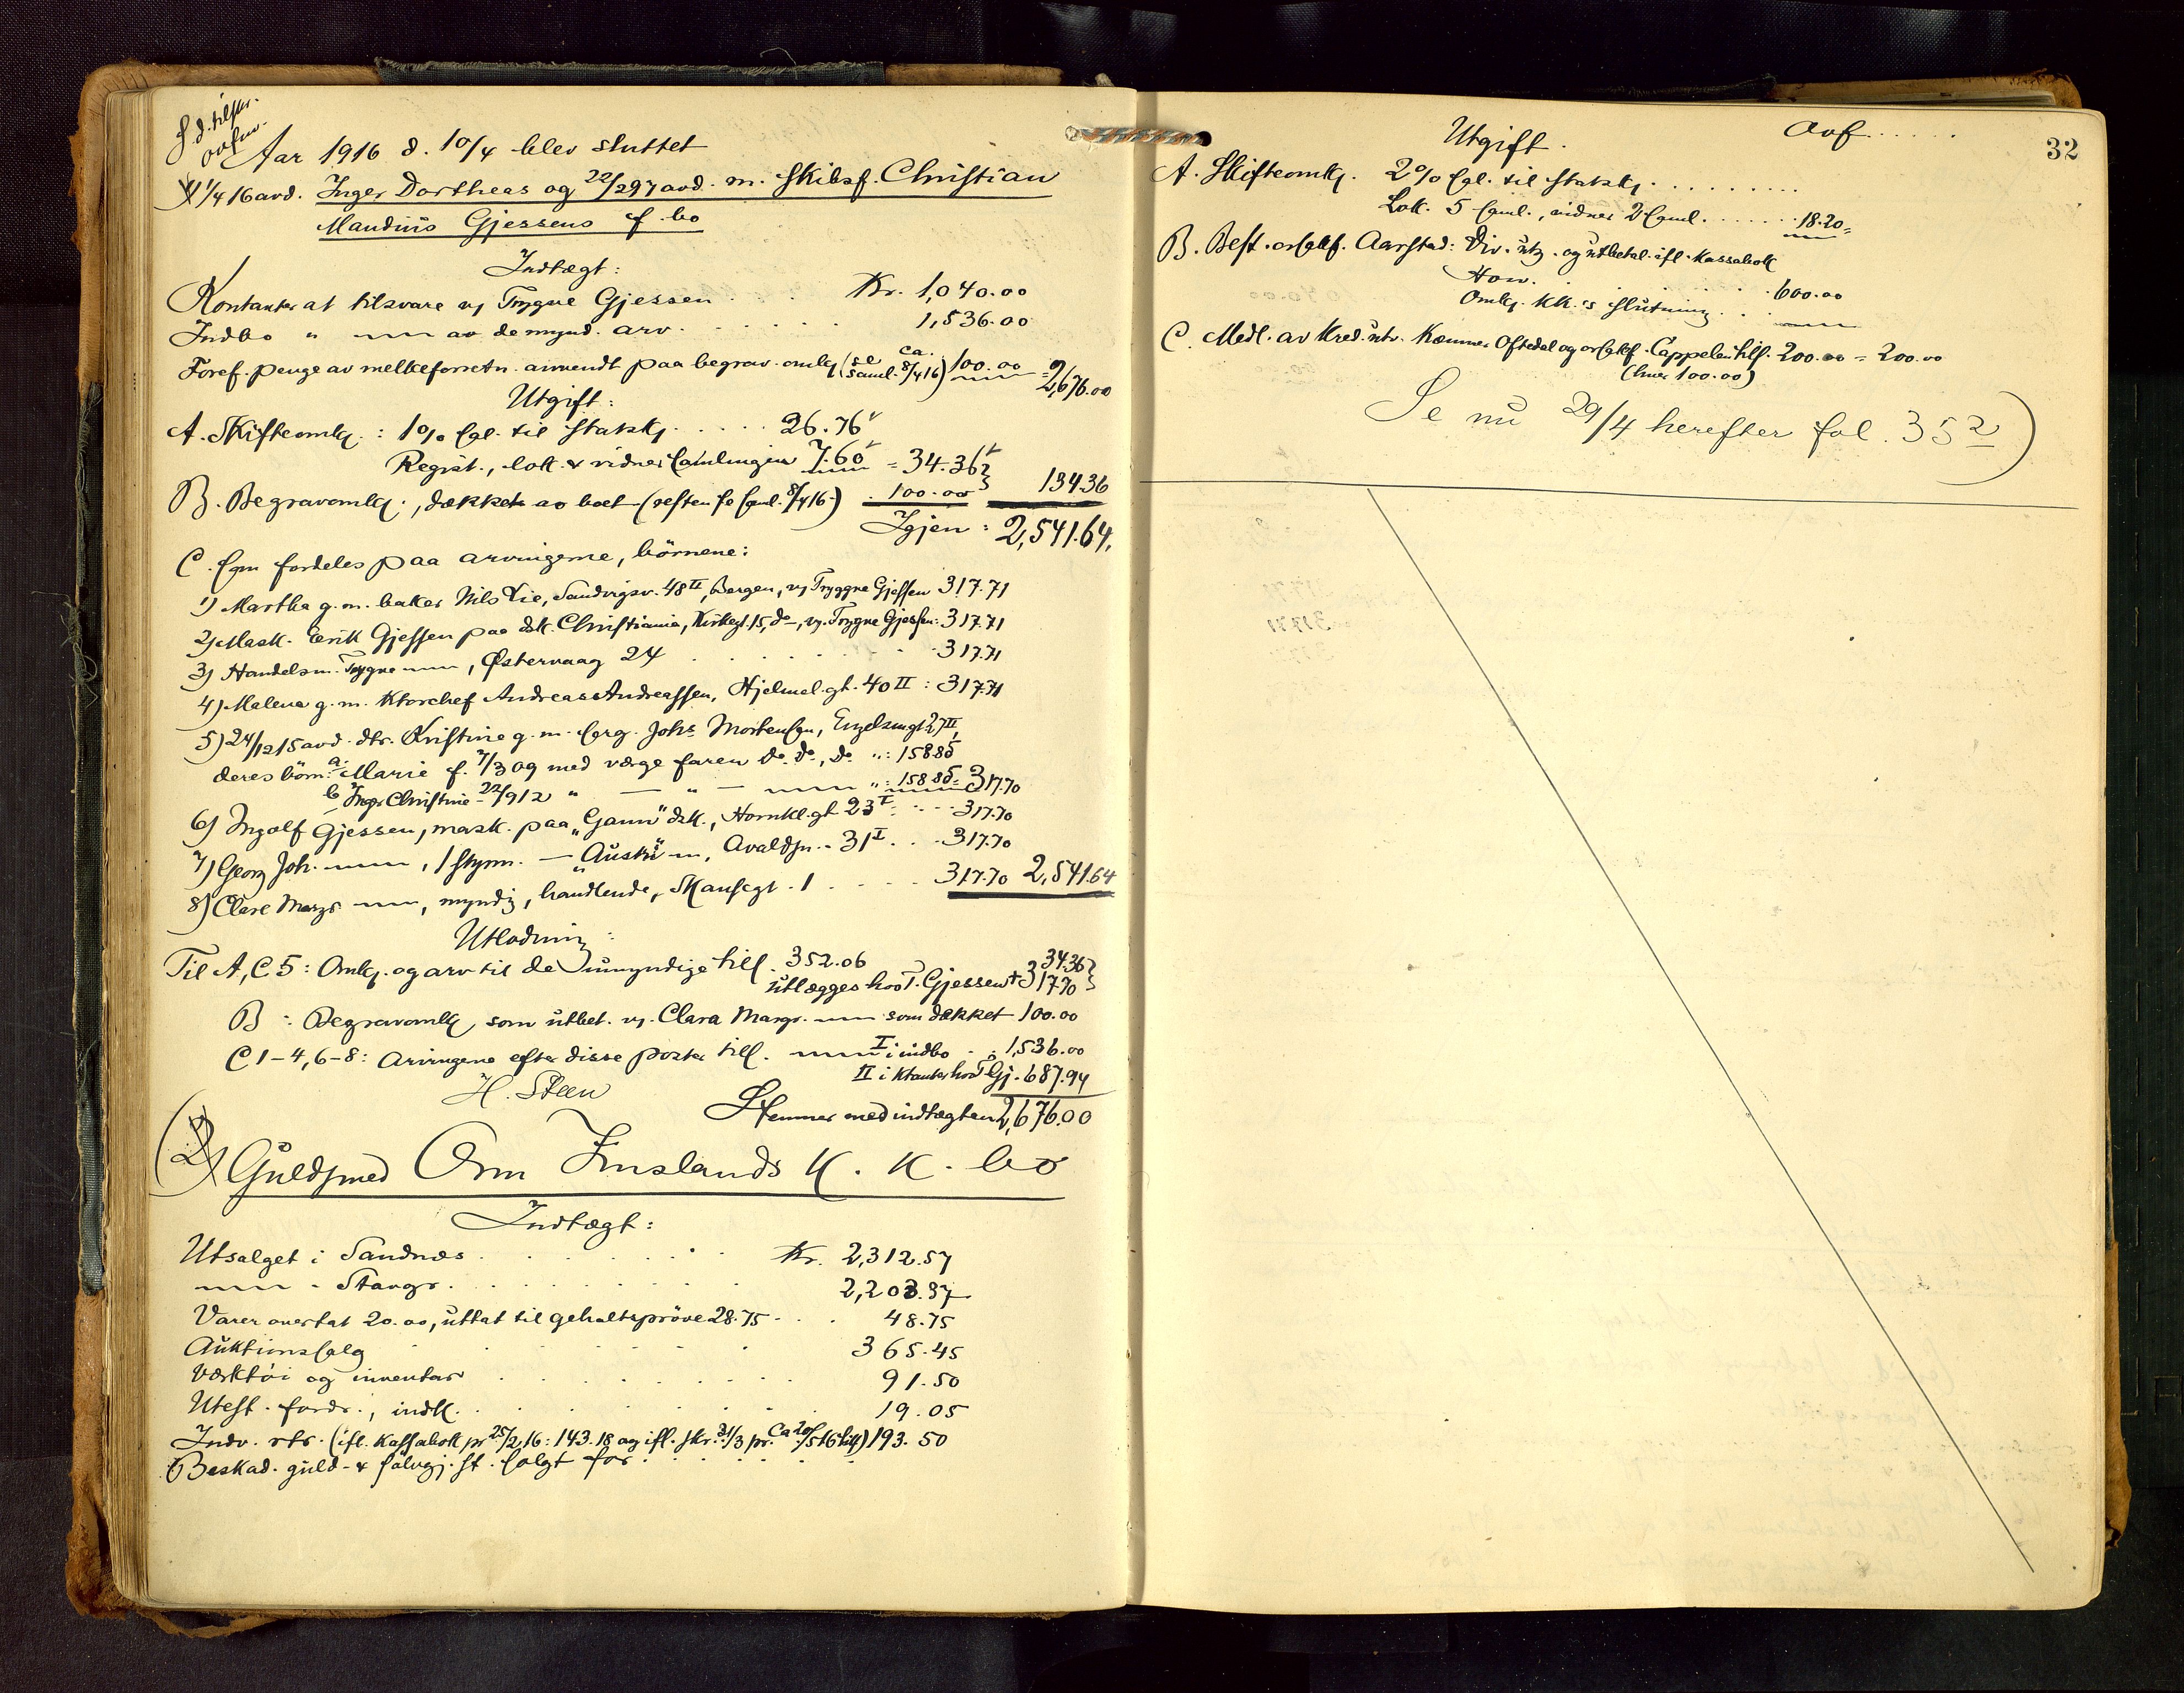 Aar 1916 d. 10/4 blev sluttet
1/4 16 avd. Inger Dortheas og 22/2 97 avd. m. skibsf. Christian
Maudius Gjessens f. bo
Indtægt:
Kontanter at tilsvare v/ Trygve Gjessen . . Kr. 1,040.00
Indbo " — av de mynd. arv. . . . . . 1,536.00
Foref. penge av melkeforretn. anvendt paa begrav. omk. (se saml. 8/4 16) ca. 100.00 = 2,676.00
Utgift:
A. Skifteomk.: 1% sgl. til statsk. . . . . 26.76
Regist., lok. & vidner samlingen 7.60 = 34.36
B. Begravomk., dækket av boet (resten se saml. 8/4 16) . 100.00 134.36
Igjen: 2,541.64,
C. som fordeles paa arvingerne, börnene:
1) Martha g. m. baker Nils Lie, Sandvigsv. 48 II, Bergen, v/ Tryggve Gjessen 317.71
2) Mask. Erik Gjessen paa dsk. Christiania, Kirkegt. 15, do —, v/ Trygve Gjessen: 317.71
3) Handelsm. Trygve —, Østervaag 24 . . . . . 317.71
4) Malena g. m. ktorchef Andreas Andreassen, Hjelmel.gt. 40 II: 317.71
5) 24/12 15 avd. dtr. Kristine g. m. serg. Johs Mortensen, Engelsmgt 27 II,
deres börn: a. Marie f. 7/3 09 med værge faren do. do., do ": 158.85
b Inger Christine - 22/9 12 " — " — — ": 158.85 = 317.70
6) Ingolf Gjessen, mask. paa "Gann" dsk., Hornkl.gt. 23 I . . . 317.70
7) Georg Joh. —, 1 styrm. — "Auski" —, Avaldsn. - 31 I . . . 317.70
8) Clare Margr. —, myndig, handlende, Skansegt. 1 . . . . 317.70 2,541.64
Utlodning:
Til A, C 5: Omk. og arv til de umyndige till. 352.06 34.36
utlægges hos T. Gjessen + 317.70
B: Begravomk. som utbet. v/ Clara Margr. — som dækket 100.00
C 1-4, 6-8: Arvingene efter disse poster till. — I i indbo . . 1,536.00
II i ktanter hos T Gj. 687.94
H. Steen
Stemmer med indtægten 2,676.00
2) Guldsmed Orm Imslands K. K. bo
Indtægt:
Utsalget i Sandnæs . . . . . . Kr. 2,312.57
— - Stavgr. . . . . . . 2,203.37
Varer overtat 20.00, uttat til gehaltsprøve 28.75 - . . 48.75
Auktionssalg . . . . . . 365.45
Værktöi og inventar . . . . . . 91.50
Utest. fordr., indk. . . . . . . 19.05
Indv. rtr. (ifl. kassabok pr 25/2 16: 143.18 og ifl. skr. 31/3 pr. ca 20/5 16 till) 193.50
Beskad. guld- & sølvgj. st. solgt for . . . . . .
Utgift. Avf . . . . .
32
A. Skifteomk. 2% sgl. til statsk. . . . . . . . .
Lok. 5 saml., vidner 2 saml. . . . . . . 18.20 =
B. Best. orsakf. Aarstad: Div. utg. og utbetal. ifl. kassabok
Hon. . . . . . . 600.00
Omk. KK.'s slutning . . . —
C. Medl. av kred.utv. Kæmner Oftedal og orsakf. Cappelen till. 200.00 = 200.00
(hver 100.00)
Se nu 29/4 herefter fol. 35 2)